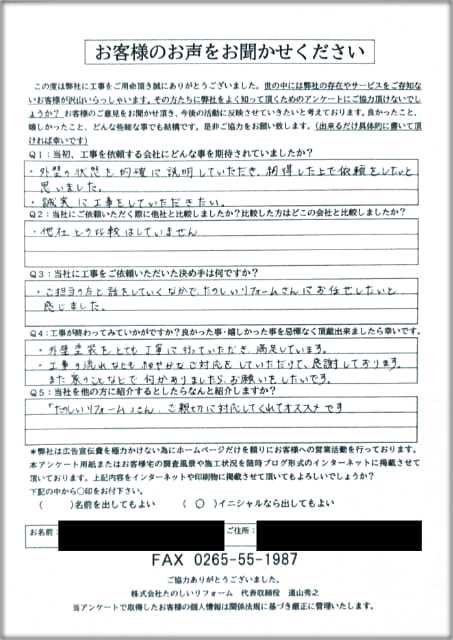 お客様のお声をお聞かせください
この度は弊社に工事をご用命頂き誠にありがとうございました。世の中には弊社の存在やサービスをご存知ない
お客様が沢山いらっしゃいます。その方たちに弊社をよく知って頂くためのアンケートにご協力頂けないでし
ょうか？ お客様のご意見をお聞かせ頂き、今後の活動に反映させていきたいと考えております。良かったこと、
嬉しかったこと、どんな些細な事でも結構です。是非ご協力をお願い致します。（出来るだけ具体的に書いて頂
ければ幸いです）
Q1：当初、工事を依頼する会社にどんな事を期待されていましたか？
・外壁の状態を的確に説明していただき、納得した上で依頼をしたいと
思いました。
・誠実に工事をしていただきたい。
Q2：当社にご依頼いただく際に他社と比較しましたか？比較した方はどこの会社と比較しましたか？
・他社との比較はしていません
Q3：当社に工事をご依頼いただいた決め手は何ですか？
・ご担当の方と話をしていくなかで、たのしいリフォームさんにお任せしたいと
感じました。
Q4：工事が終わってみていかがですか？良かった事・嬉しかった事を忌憚なく頂戴出来ましたら幸いです。
・外壁塗装をとても丁寧に行っていただき、満足しています。
・工事の流れなども細やかなご対応をしていただけて、感謝しております。
また家のことなどで何かありましたらお願いをしたいです。
Q5：当社を他の方に紹介するとしたらなんと紹介しますか？
「たのしいリフォーム」さん、ご親切に対応してくれてオススメです
＊弊社は広告宣伝費を極力かけない為にホームページだけを頼りにお客様への営業活動を行っております。
本アンケート用紙またはお客様宅の調査風景や施工状況を随時ブログ形式のインターネットに掲載させて
頂いております。上記内容をインターネットや印刷物に掲載させて頂いてもよろしいでしょうか？
下記の中から〇印をお付下さい。
（ ）名前を出してもよい （ ○ ）イニシャルなら出してもよい
お名前： ご住所：
FAX 0265-55-1987
ご協力ありがとうございました。
株式会社たのしいリフォーム 代表取締役 遠山秀之
当アンケートで取得したお客様の個人情報は関係法規に基づき厳正に管理いたします。